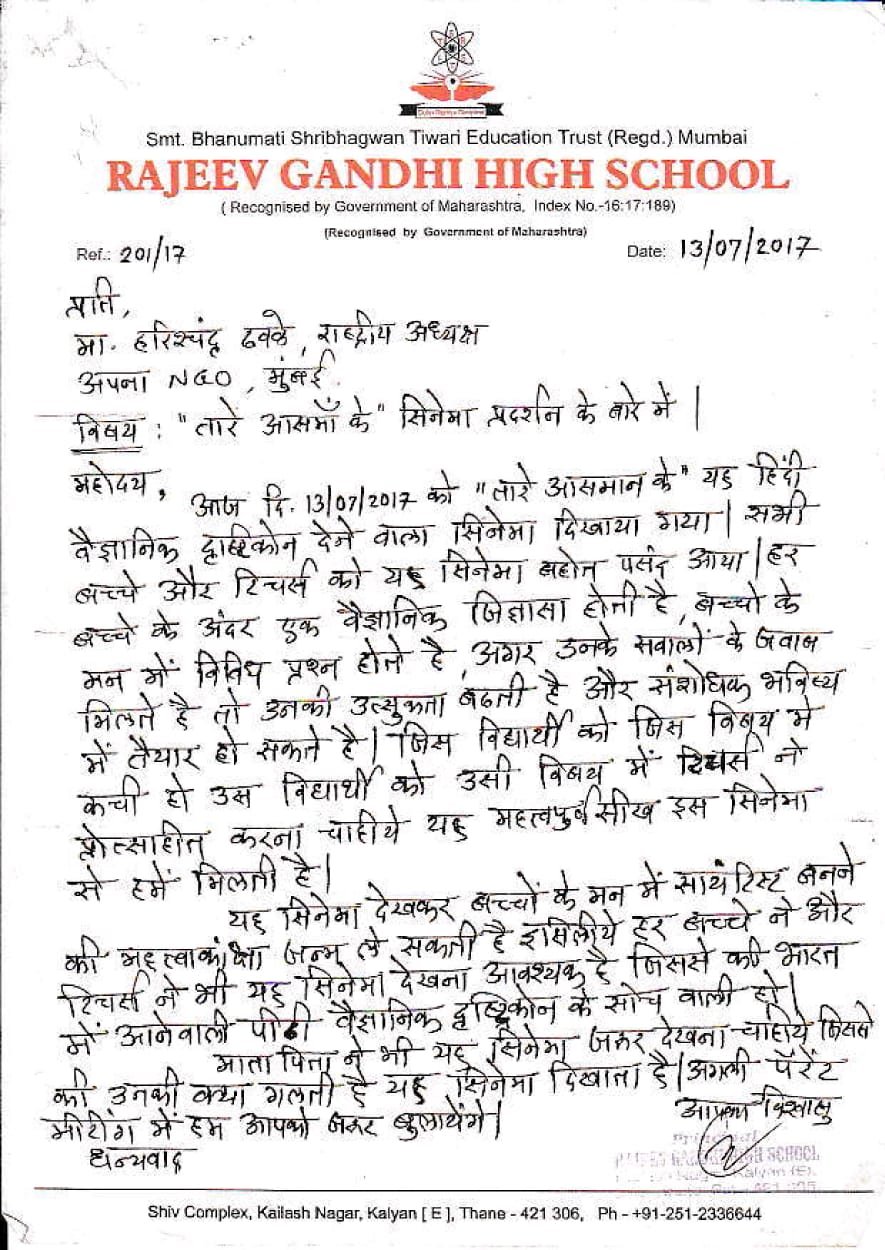 Smt. Bhanumati Shribhagwan Tiwari Education Trust (Regd.) Mumbai
RAJEEV GANDHI HIGH SCHOOL
( Recognised by Government of Maharashtra, Index No.-16:17:189)
(Recognised by Government of Maharashtra)
Ref.: 201/17 Date: 13/07/2017
प्रति,
मा. हरिश्चंद्र ढवळे, राष्ट्रीय अध्यक्ष
अपना NGO, मुंबई.
विषय : "तारे आसमाँ के" सिनेमा प्रदर्शन के बारे में |
महोदय,
आज दि. 13/07/2017 को "तारे आसमान के" यह हिंदी
वैज्ञानिक दृष्टिकोन देने वाला सिनेमा दिखाया गया | सभी
बच्चे और टिचर्स को यह सिनेमा बहोत पसंद आया | हर
बच्चे के अंदर एक वैज्ञानिक जिज्ञासा होती है, बच्चो के
मन में विविध प्रश्न होते है, अगर उनके सवालों के जवाब
मिलते है तो उनकी उत्सुकता बढती है और संशोधक भविष्य
में तैयार हो सकते है | जिस विद्यार्थी को जिस विषय मे
रुची हो उस विद्यार्थी को उसी विषय में टिचर्स ने
प्रोत्साहीत करना चाहीये यह महत्वपुर्ण सीख इस सिनेमा
से हमें मिलती है |
यह सिनेमा देखकर बच्चों के मन में सायंटिस्ट बनने
की महत्वाकांक्षा जन्म ले सकती है इसिलीये हर बच्चे ने और
टिचर्स ने भी यह सिनेमा देखना आवश्यक है जिससे की भारत
में आनेवाली पीढी वैज्ञानिक दृष्टिकोन के सोच वाली हो |
माता पिता ने भी यह सिनेमा जरूर देखना चाहीये जिससे
की उनकी क्या गलती है यह सिनेमा दिखाता है | अगली पॅरेंट
मीटींग में हम आपको जरूर बुलायेंगे |
आपका विश्वासु
धन्यवाद
Principal
RAJEEV GANDHI HIGH SCHOOL
Kalyan (E),
Shiv Complex, Kailash Nagar, Kalyan [ E ], Thane - 421 306, Ph - +91-251-2336644